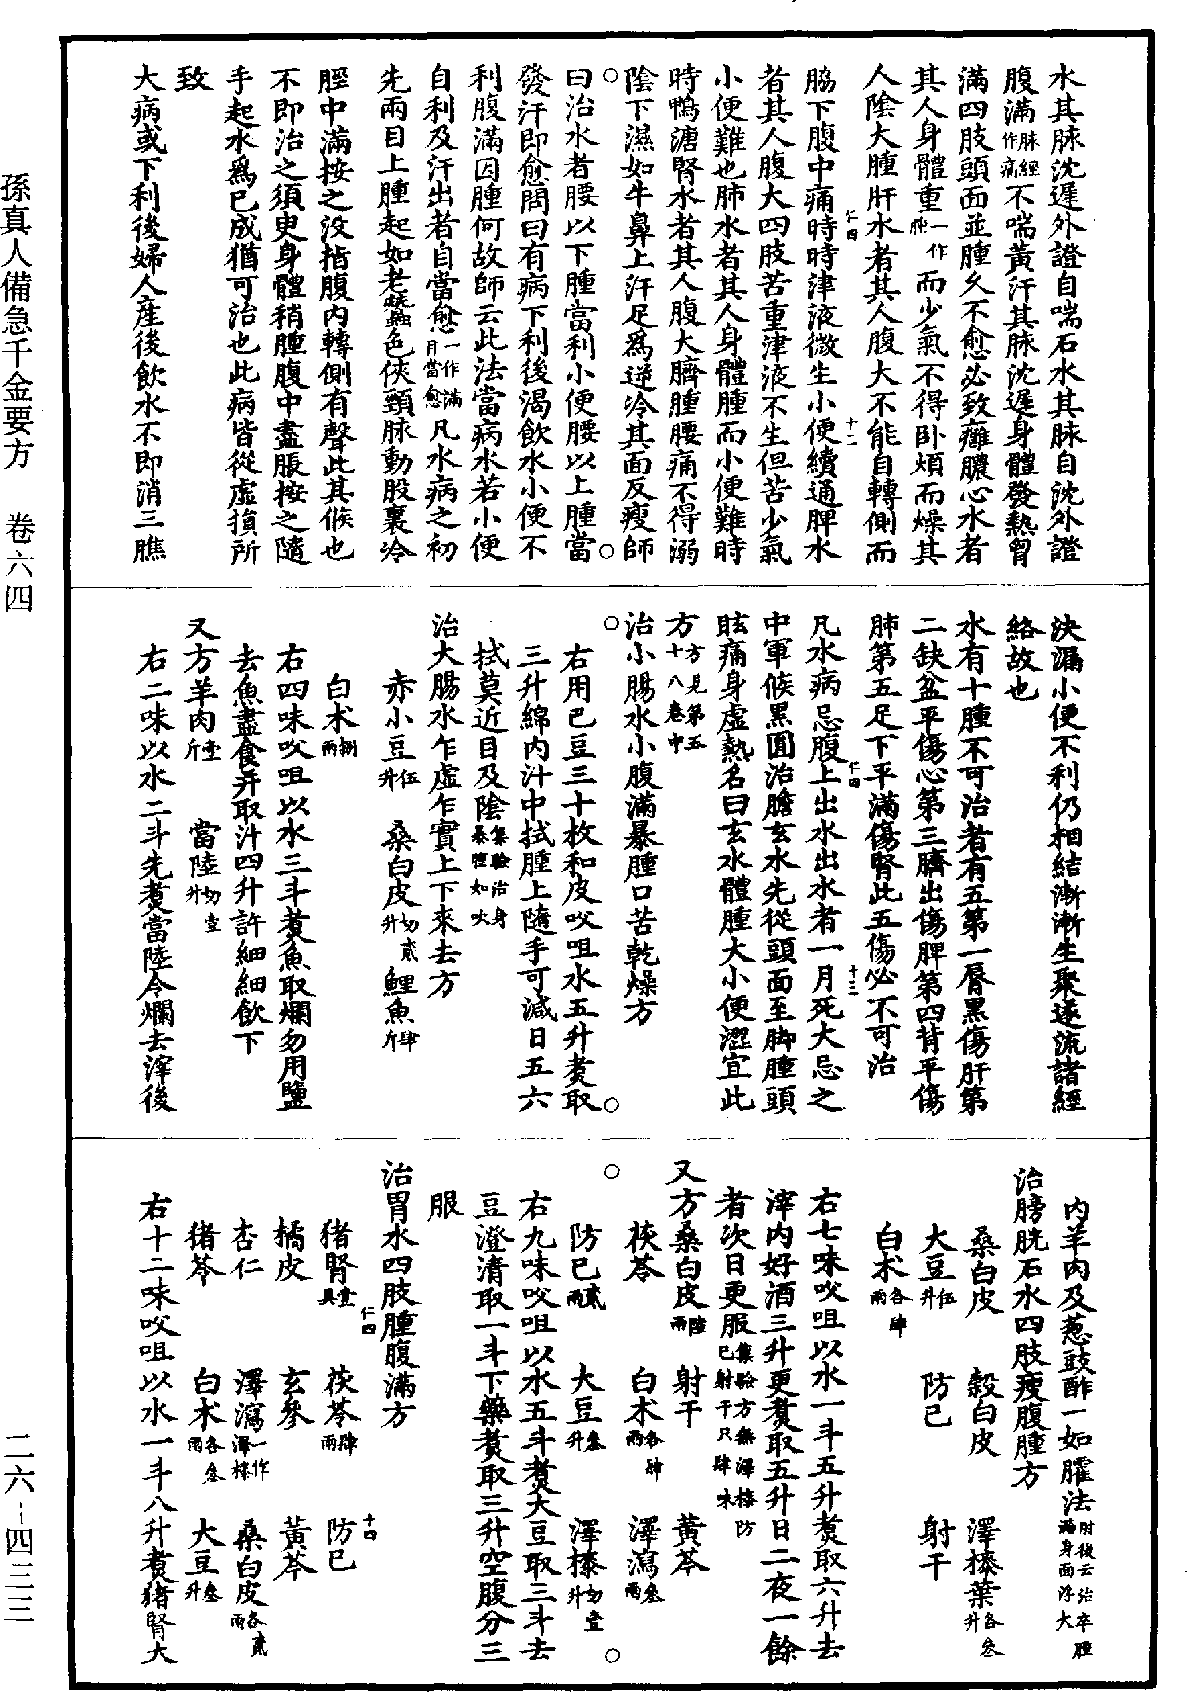 水其脉沈遲外證自喘石水其脉自沈外證
腹滿脉經作痛不喘黃汗其脉沈遲身體發熱胷
滿四肢頭面並腫久不愈必致癰膿心水者
其人身體重一作腫而少氣不得卧煩而燥其
人陰大腫肝水者其人腹大不能自轉側而
脇下腹中痛時時津液微生小便續通脾水
仁四 十二
者其人腹大四肢苦重津液不生但苦少氣
小便難也肺水者其人身體腫而小便難時
時鴨溏腎水者其人腹大臍腫腰痛不得溺
陰下濕如牛鼻上汗足爲逆冷其面反瘦師
○ ○
曰治水者腰以下腫當利小便腰以上腫當
發汗即愈問曰有病下利後渴飲水小便不
利腹滿因腫何故師云此法當病水若小便
自利及汗出者自當愈一作滿月當愈凡水病之初
先兩目上腫起如老蠶色俠頸脉動股裏冷
脛中滿按之没指腹内轉側有聲此其候也
不即治之須臾身體稍腫腹中盡脹按之隨
手起水爲已成猶可治也此病皆從虛損所
致
大病或下利後婦人産後飲水不即消三膲
決漏小便不利仍相結漸漸生聚遂流諸經
絡故也
水有十腫不可治者有五第一脣黑傷肝第
二缺盆平傷心第三臍出傷脾第四背平傷
肺第五足下平滿傷腎此五傷必不可治
仁四 十三
凡水病忌腹上出水出水者一月死大忌之
中軍候黑圓治膽玄水先從頭面至脚腫頭
眩痛身虛熱名曰玄水體腫大小便澀宜此
方方見第五十八卷中
治小腸水小腹滿暴腫口苦乾燥方
○ ○
右用巴豆三十枚和皮㕮咀水五升煑取
三升綿内汁中拭腫上隨手可減日五六
拭莫近目及陰集驗治身暴腫如吹
治大腸水乍虛乍實上下來去方
赤小豆伍升 桑白皮切貳升 鯉魚肆斤
白术捌兩
右四味㕮咀以水三斗煑魚取爛勿用鹽
去魚盡食并取汁四升許細細飲下
又方羊肉壹斤 當陸切壹升
右二味以水二斗先煑當陸令爛去滓後
内羊肉及葱豉酢一如臛法肘後云治卒腫滿身面浮大
治膀胱石水四肢瘦腹腫方
桑白皮 穀白皮 澤㯶葉各叁升
大豆伍升 防已 射干
白术各肆兩
右七味㕮咀以水一斗五升煑取六升去
滓内好酒三升更煑取五升日二夜一餘
者次日更服集驗方無澤㯶防已射干只肆味
又方桑白皮陸兩 射干 黃芩
茯苓 白术各肆兩 澤瀉叁兩
○ ○
防已貳兩 大豆叁升 澤㯶切壹升
右九味㕮咀以水五斗煑大豆取三斗去
豆澄清取一斗下藥煑取三升空腹分三
服
治胃水四肢腫腹滿方
仁四 十四
猪腎壹具 茯苓肆兩 防已
橘皮 玄參 黃芩
杏仁 澤瀉一作澤㯶 桑白皮各貳兩
猪苓 白术各叁兩 大豆叁升
右十二味㕮咀以水一斗八升煑猪腎大
孫真人備急千金要方 卷六四
二六-四三三